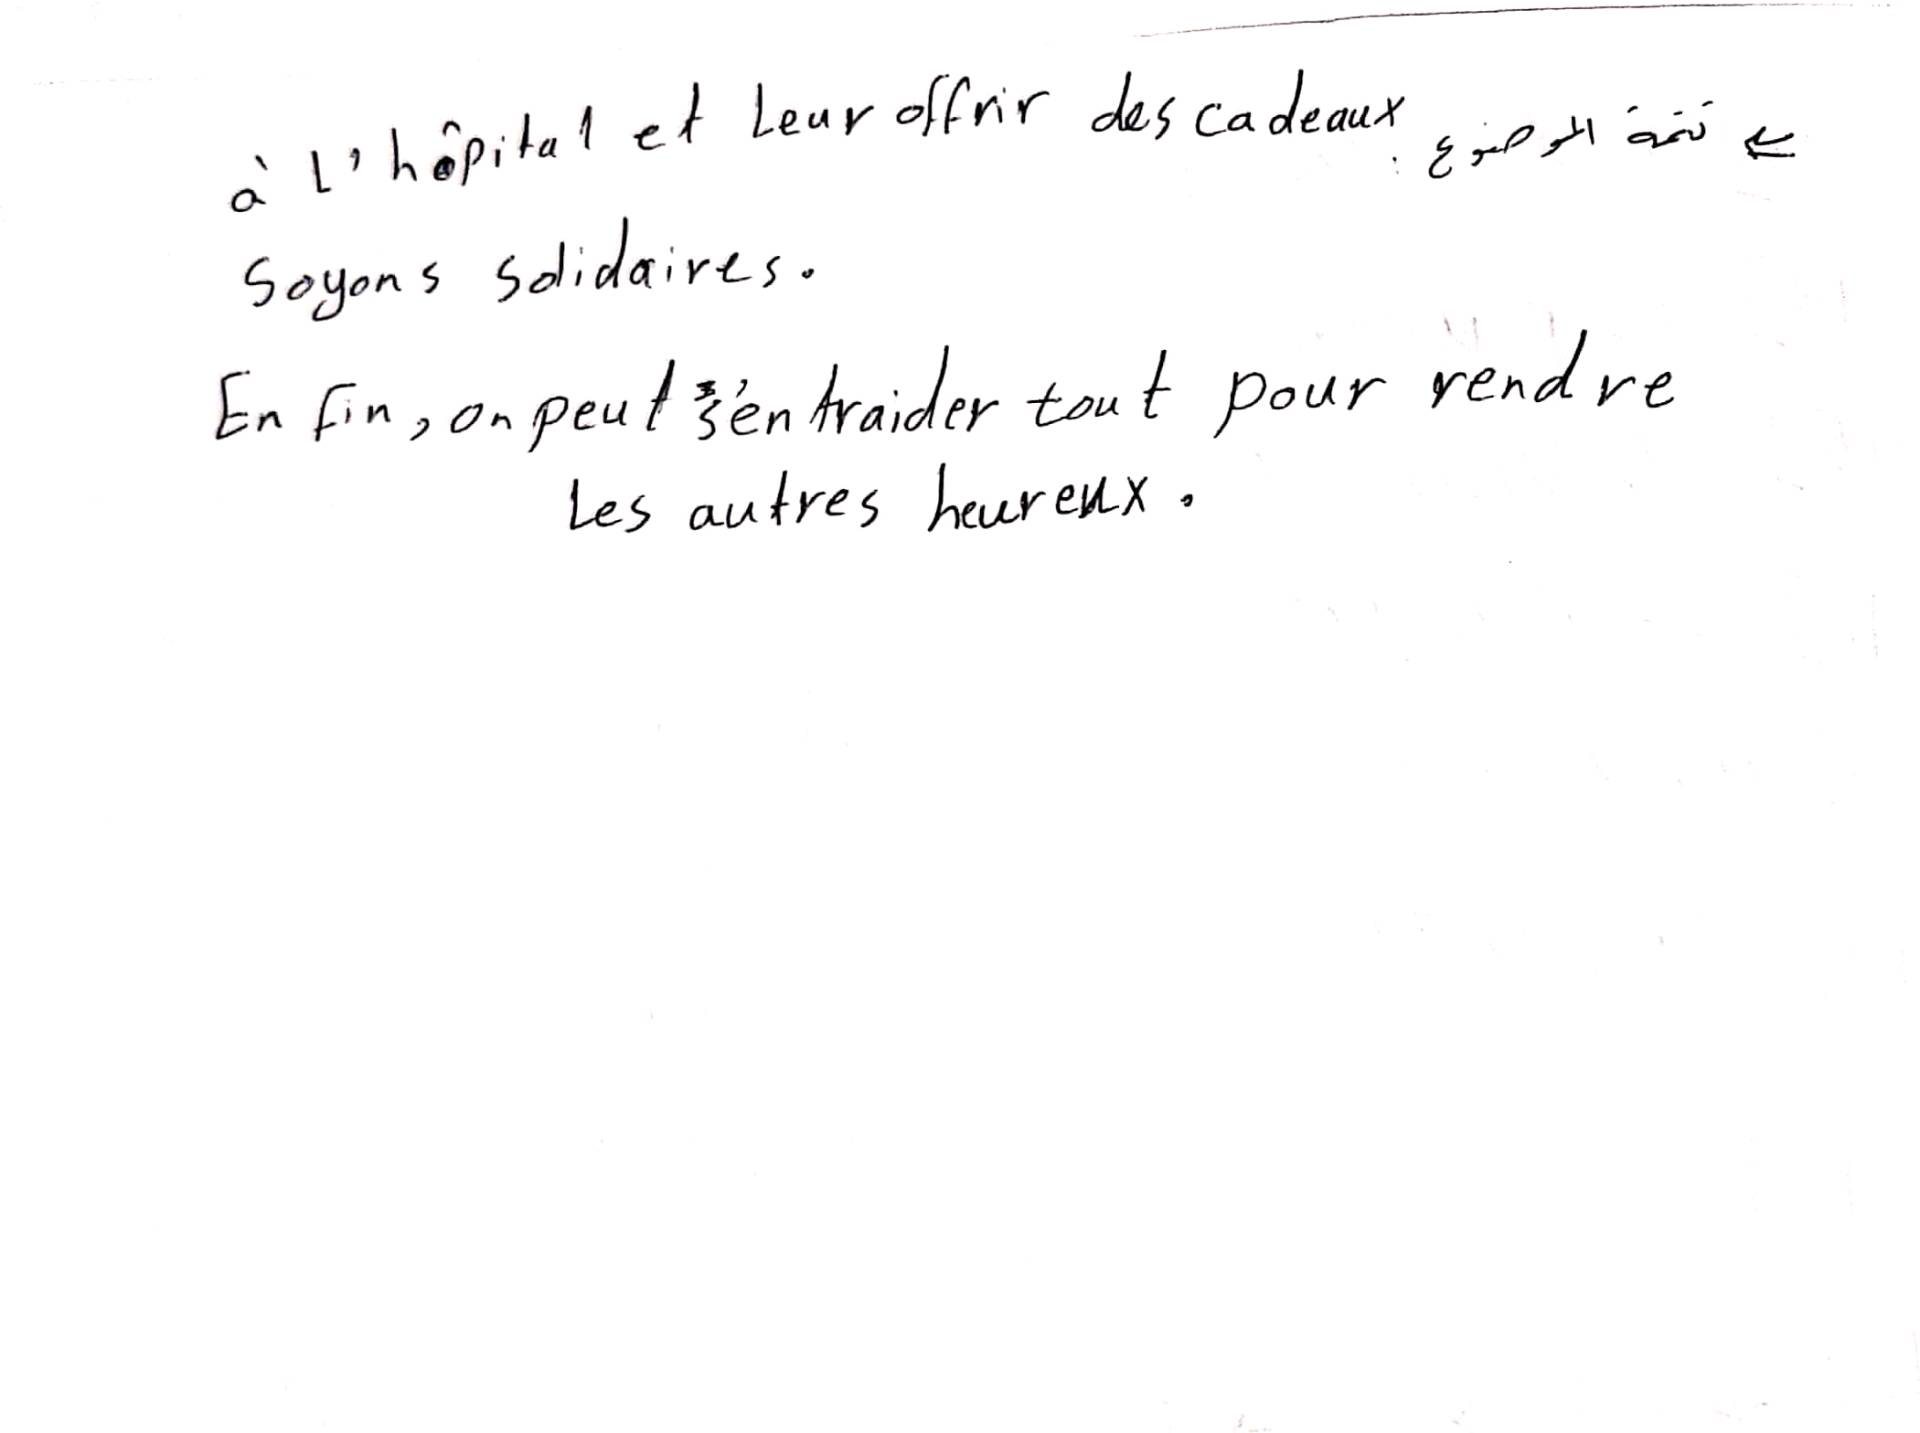 à l'hôpital et leur offrir des cadeaux
← تتمة الموضوع :
Soyons solidaires.
En fin, on peut s'entraider tout pour rendre
les autres heureux.